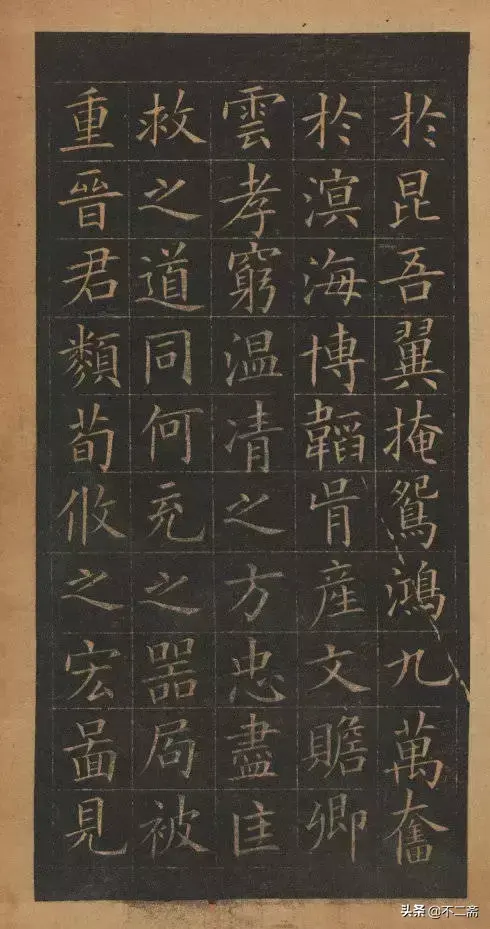 於昆吾翼掩鴛鴻九萬奮
於溟海博韜胷產文贍卿
雲孝窮温凊之方忠盡匡
救之道同何充之器局被
重晉君類荀攸之宏啚見
头条@不二斋